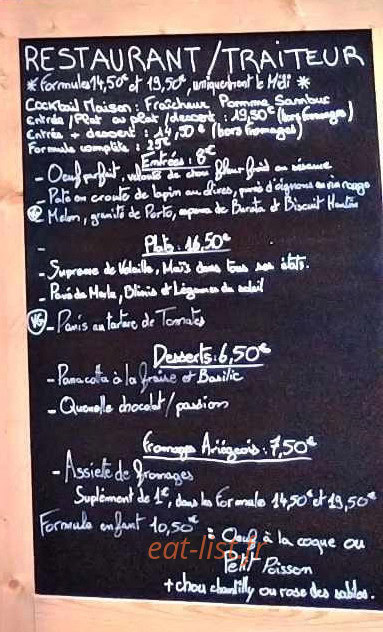 RESTAURANT/TRAITEUR
* Formules 14,50€ et 19,50€, uniquement le Midi *
Cocktail Maison: Fraîcheur Pomme Sambuc
Entrée/Plat ou plat/dessert : 19,50€ (hors fromages)
Entrée + dessert : 14,50€ (hors fromages)
Formule complète : 25€
Entrées: 8€
- Oeuf parfait, velouté de chou fleur froid en
- Paté en croute de lapin au olives, purée d'oignons au vin rouge
Melon, granité de Porto, de Burata et Biscuit
-
Plats: 16,50€
- Supreme de Volaille, Maïs dans tous ses états.
- Pavé de Merlu, Blinis et Légumes du soleil
VG - Panis au tartare de Tomates
Desserts: 6,50€
- Panacotta à la fraise et Basilic
- Quenelle chocolat/passion
Fromages Ariégeois: 7,50€
- Assiete de fromages
Suplément de 1€, dans les formules 14,50€ et 19,50€
Formule enfant 10,50€ : Oeuf à la coque ou
Petit Poisson
+ chou chantilly ou rose des sables.
eat-list.fr